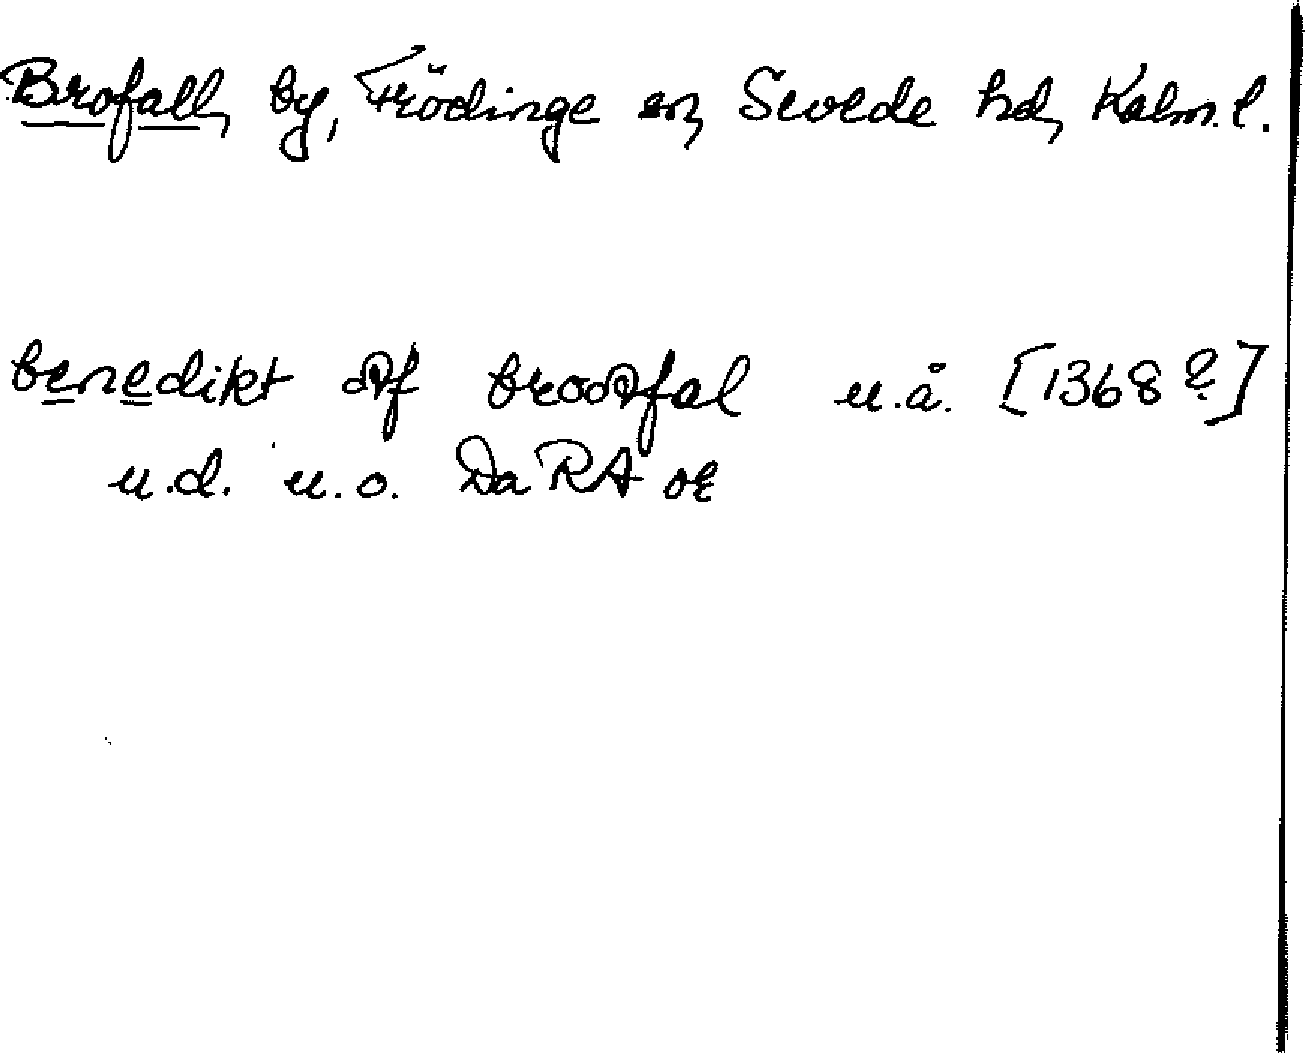 Brofall, by, Frödinge sn, Sevede hd, Kalm. l.
benedikt af broofal u.å. [1368?]
u.d. u.o. DaRA or